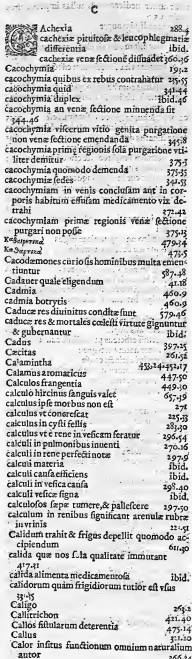 C
CAchexia 288.4
cachexiæ pituitosæ & leucophlegmatiæ
differentia ibid.
cachexiæ venæ sectionē dissuadēt 360.36
Cacochymia 193.2
cacochymia quibus ex rebus contrahatur 225.15
cacochymia quid 341.44
cacochymia duplex ibid.46
cacochymia an venæ sectione minuenda sit
344.46
cacochymia viscerum vitio genita purgatione
non venæ sectione emendanda 345.8
cacochymia primę regionis sola purgatione vti-
liter demitur 375.5
cacochymia quomodo demenda 375.35
cacochymiæ sedes 341.53
cacochymiam in venis conclusam ant in cor-
poris habitum effusam medicamento vix de-
trahi 372.42
cacochymiam primæ regionis venæ sectione
purgari non posse 375.13
479.14
473.5
Cacodæmones curiosis hominibus multa emen-
tiuntur 587.48
Cadauer quale eligendum 41.18
Cadmia 460.9
cadmia botryris 460.9
Caducæ res diuinitus conditæ sunt 579.46
caducæ res & mortales cœlesti virtute gignuntur
& gubernantur ibid.
Cadus 397.25
Cæcitas 261.52
Calamintha 453.24.452.17
Calamus aromaticus 447.50
Calculos frangentia 449.10
calculo hircinus sanguis valet 657.39
calculus ipse morbus non est 271
calculus vt concrescat 225.33
calculus in cysti fellis 283.30
calculus vt è rene in vesicam feratur 296.54
calculi in pulmonibus inuenti 270.16
calculi in rene perfecti notæ 297.9
calculi materia ibid.
calculi causa efficiens ibid.
calculi in vesica causa 298.40
calculi vesicæ signa ibid.
calculosos sæpe tumere,& palescere 297.50
calculum in renibus significant arenulæ rubræ
in vrinis 22.53
Calidum trahit & frigus depellit quomodo ac-
cipiendum 611.30
calida quæ nos sola qualitate immutant
417.31
calida alimenta medicamentosa ibid.
calidorum quàm frigidiorum tutior est vsus
33.15
Caligo 263.2
Callitrichon 421.40
Callos fistularum deterentia 475.14
Callus
Calor insitus functionum omnium naturalium
autor